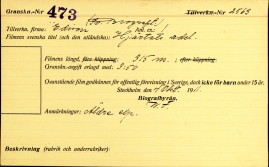 Granskn.-Nr 473 Tillverkn.-Nr 2563
Tillverkn. firma: Edison
Filmens svenska titel (och den utländska): Hjärtats adel.
Filmens längd, före klippning: 315 m. efter klippning:
Granskn.-avgift erlagd med: 3:50
Ovanstående film godkännes för offentlig förevisning i Sverige, dock icke för barn under 15 år.
Stockholm den 4 Okt. 1911.
Biografbyrån.
Anmärkningar: Äldre ex.
Beskrivning (rubrik och underrubriker):